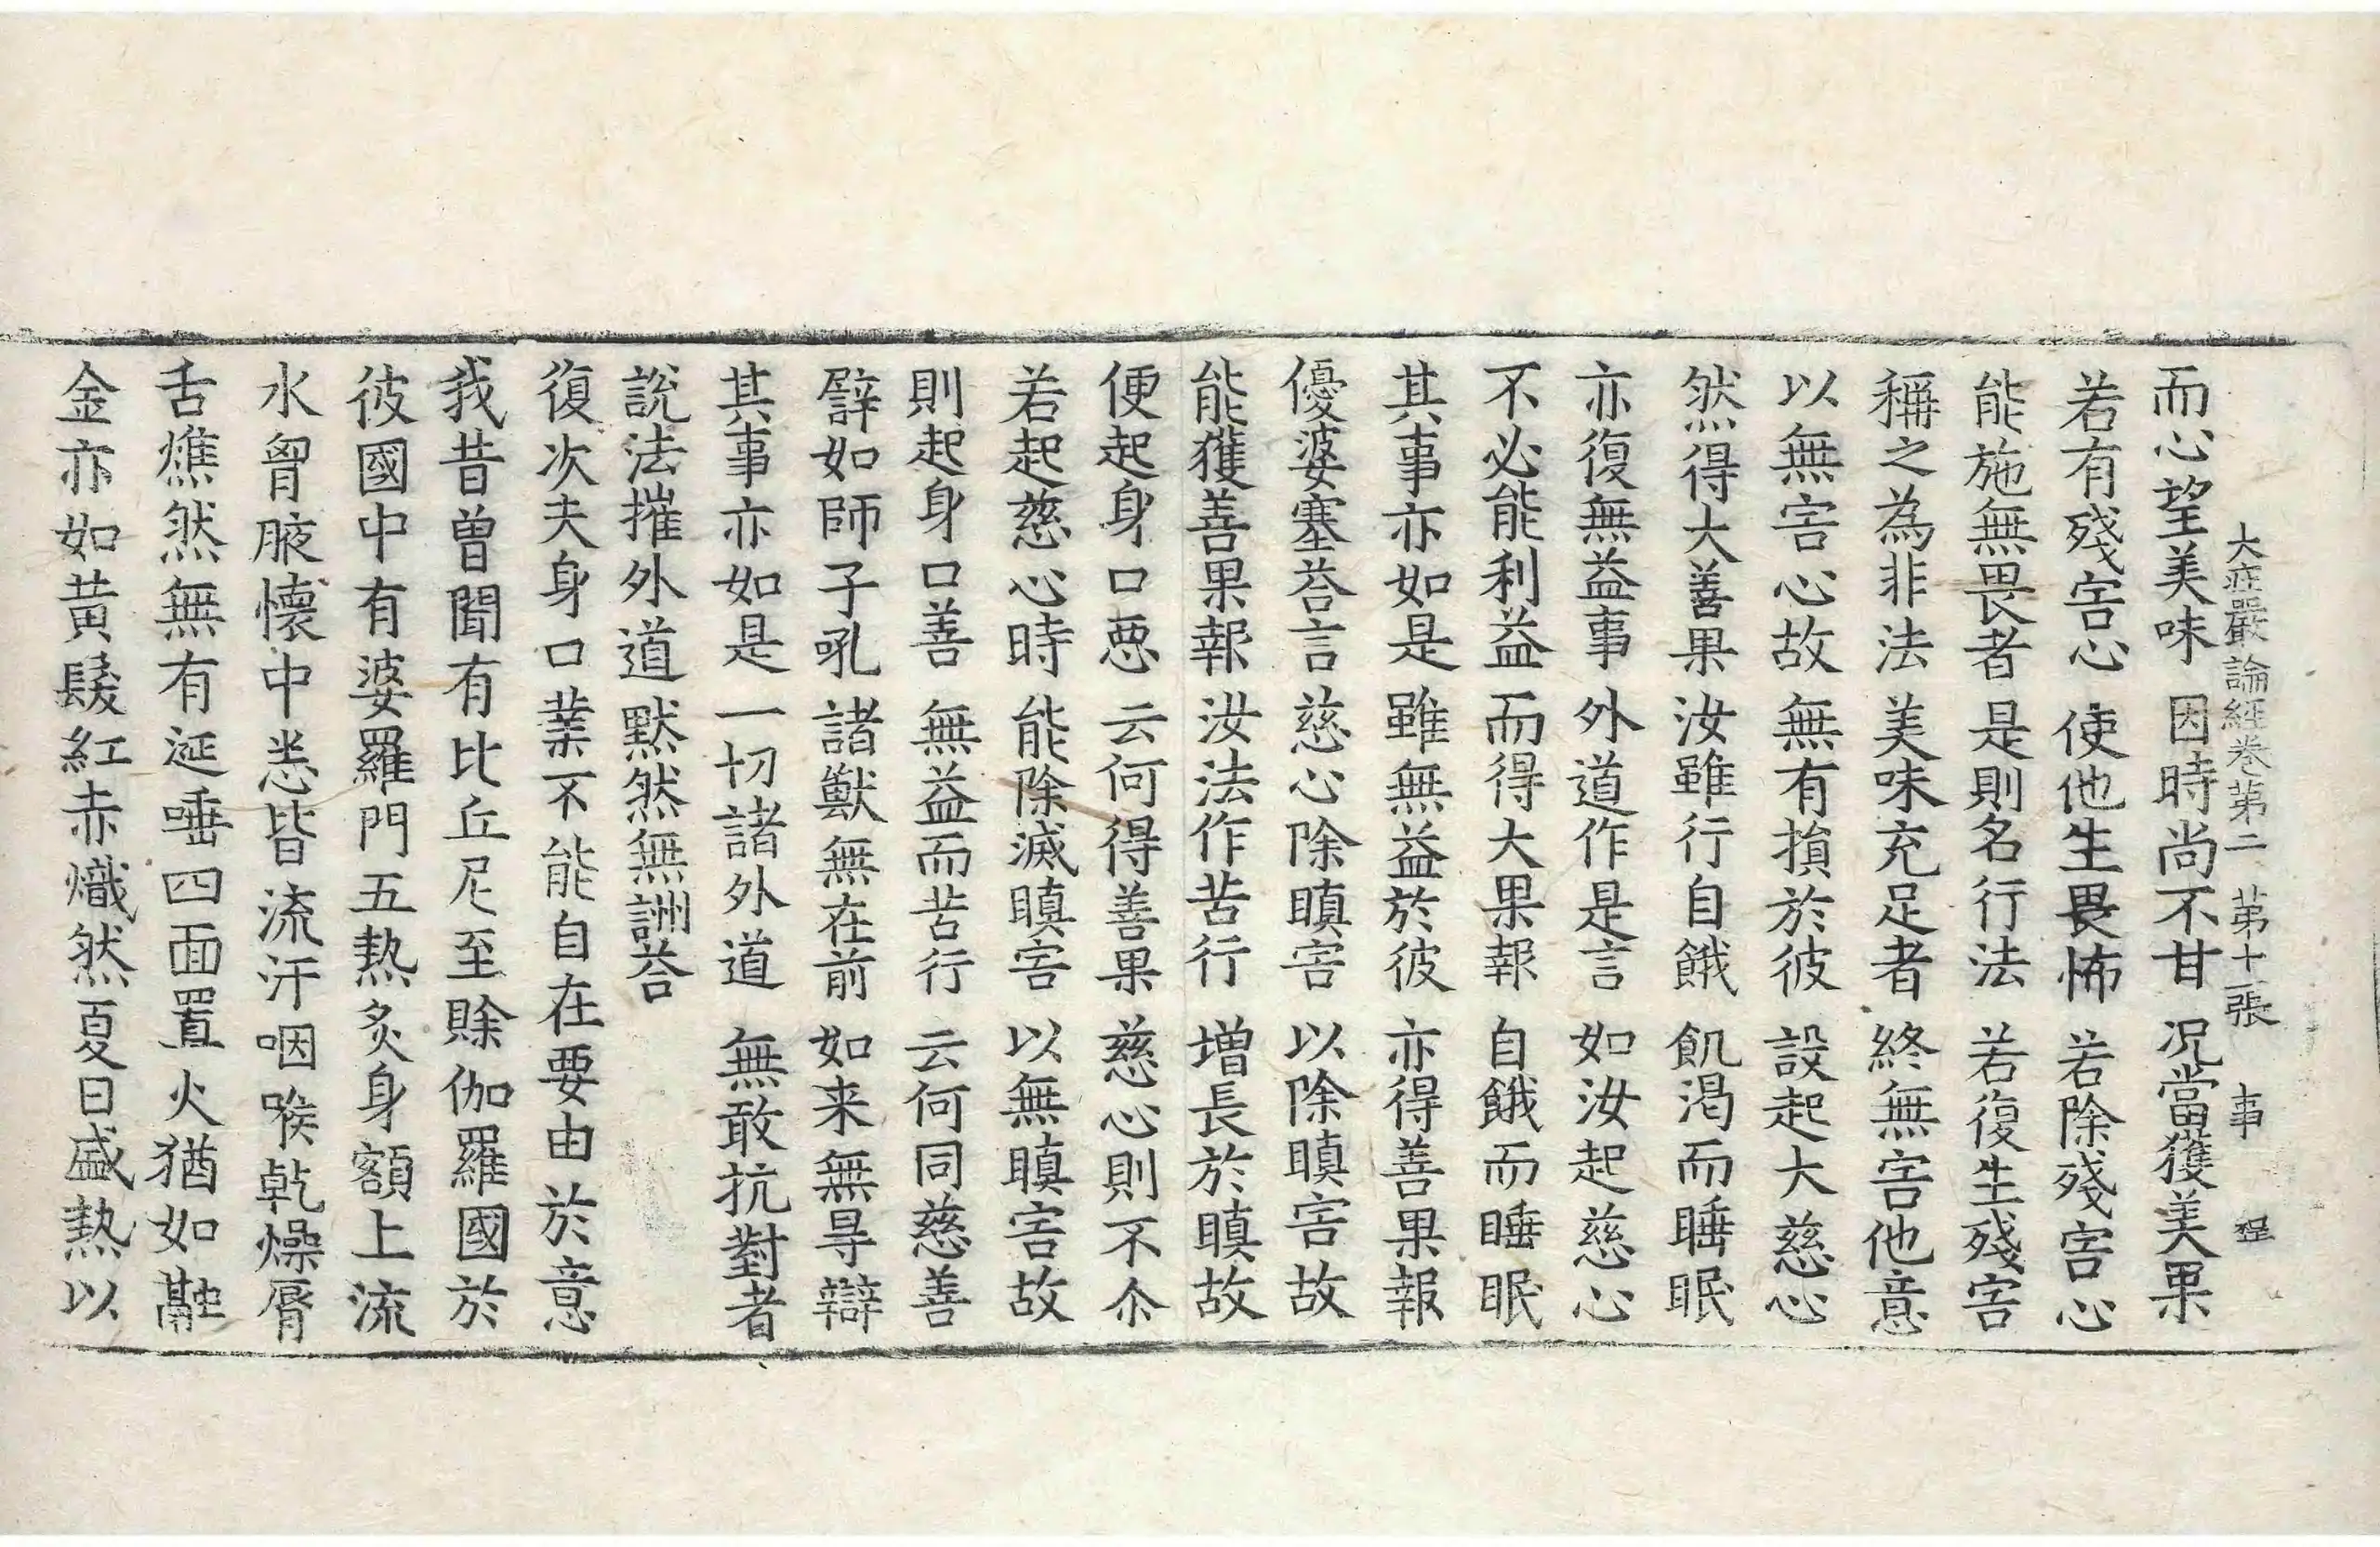 大庄嚴論經卷第二 第十一張 事 程
而心望美味 因時尚不甘 况當獲美果
若有殘害心 使他生畏怖 若除殘害心
能施無畏者 是則名行法 若復生殘害
稱之為非法 美味充足者 終無害他意
以無害心故 無有損於彼 設起大慈心
然得大善果 汝雖行自餓 飢渴而睡眠
亦復無益事 外道作是言 如汝起慈心
不必能利益 而得大果報 自餓而睡眠
其事亦如是 雖無益於彼 亦得善果報
優婆塞荅言 慈心除瞋害 以除瞋害故
能獲善果報 汝法作苦行 增長於瞋故
便起身口惡 云何得善果 慈心則不尒
若起慈心時 能除滅瞋害 以無瞋害故
則起身口善 無益而苦行 云何同慈善
譬如師子吼 諸獸無在前 如来無㝵辯
其事亦如是 一切諸外道 無敢抗對者
說法摧外道 默然無詶荅
復次夫身口業不能自在要由於意
我昔曾聞有比丘尼至賒伽羅國於
彼國中有婆羅門五熱炙身額上流
水胷腋懷中悉皆流汗咽喉乾燥脣
舌燋然無有涎唾四面置火猶如融
金亦如黃髮紅赤熾然夏日盛熱以